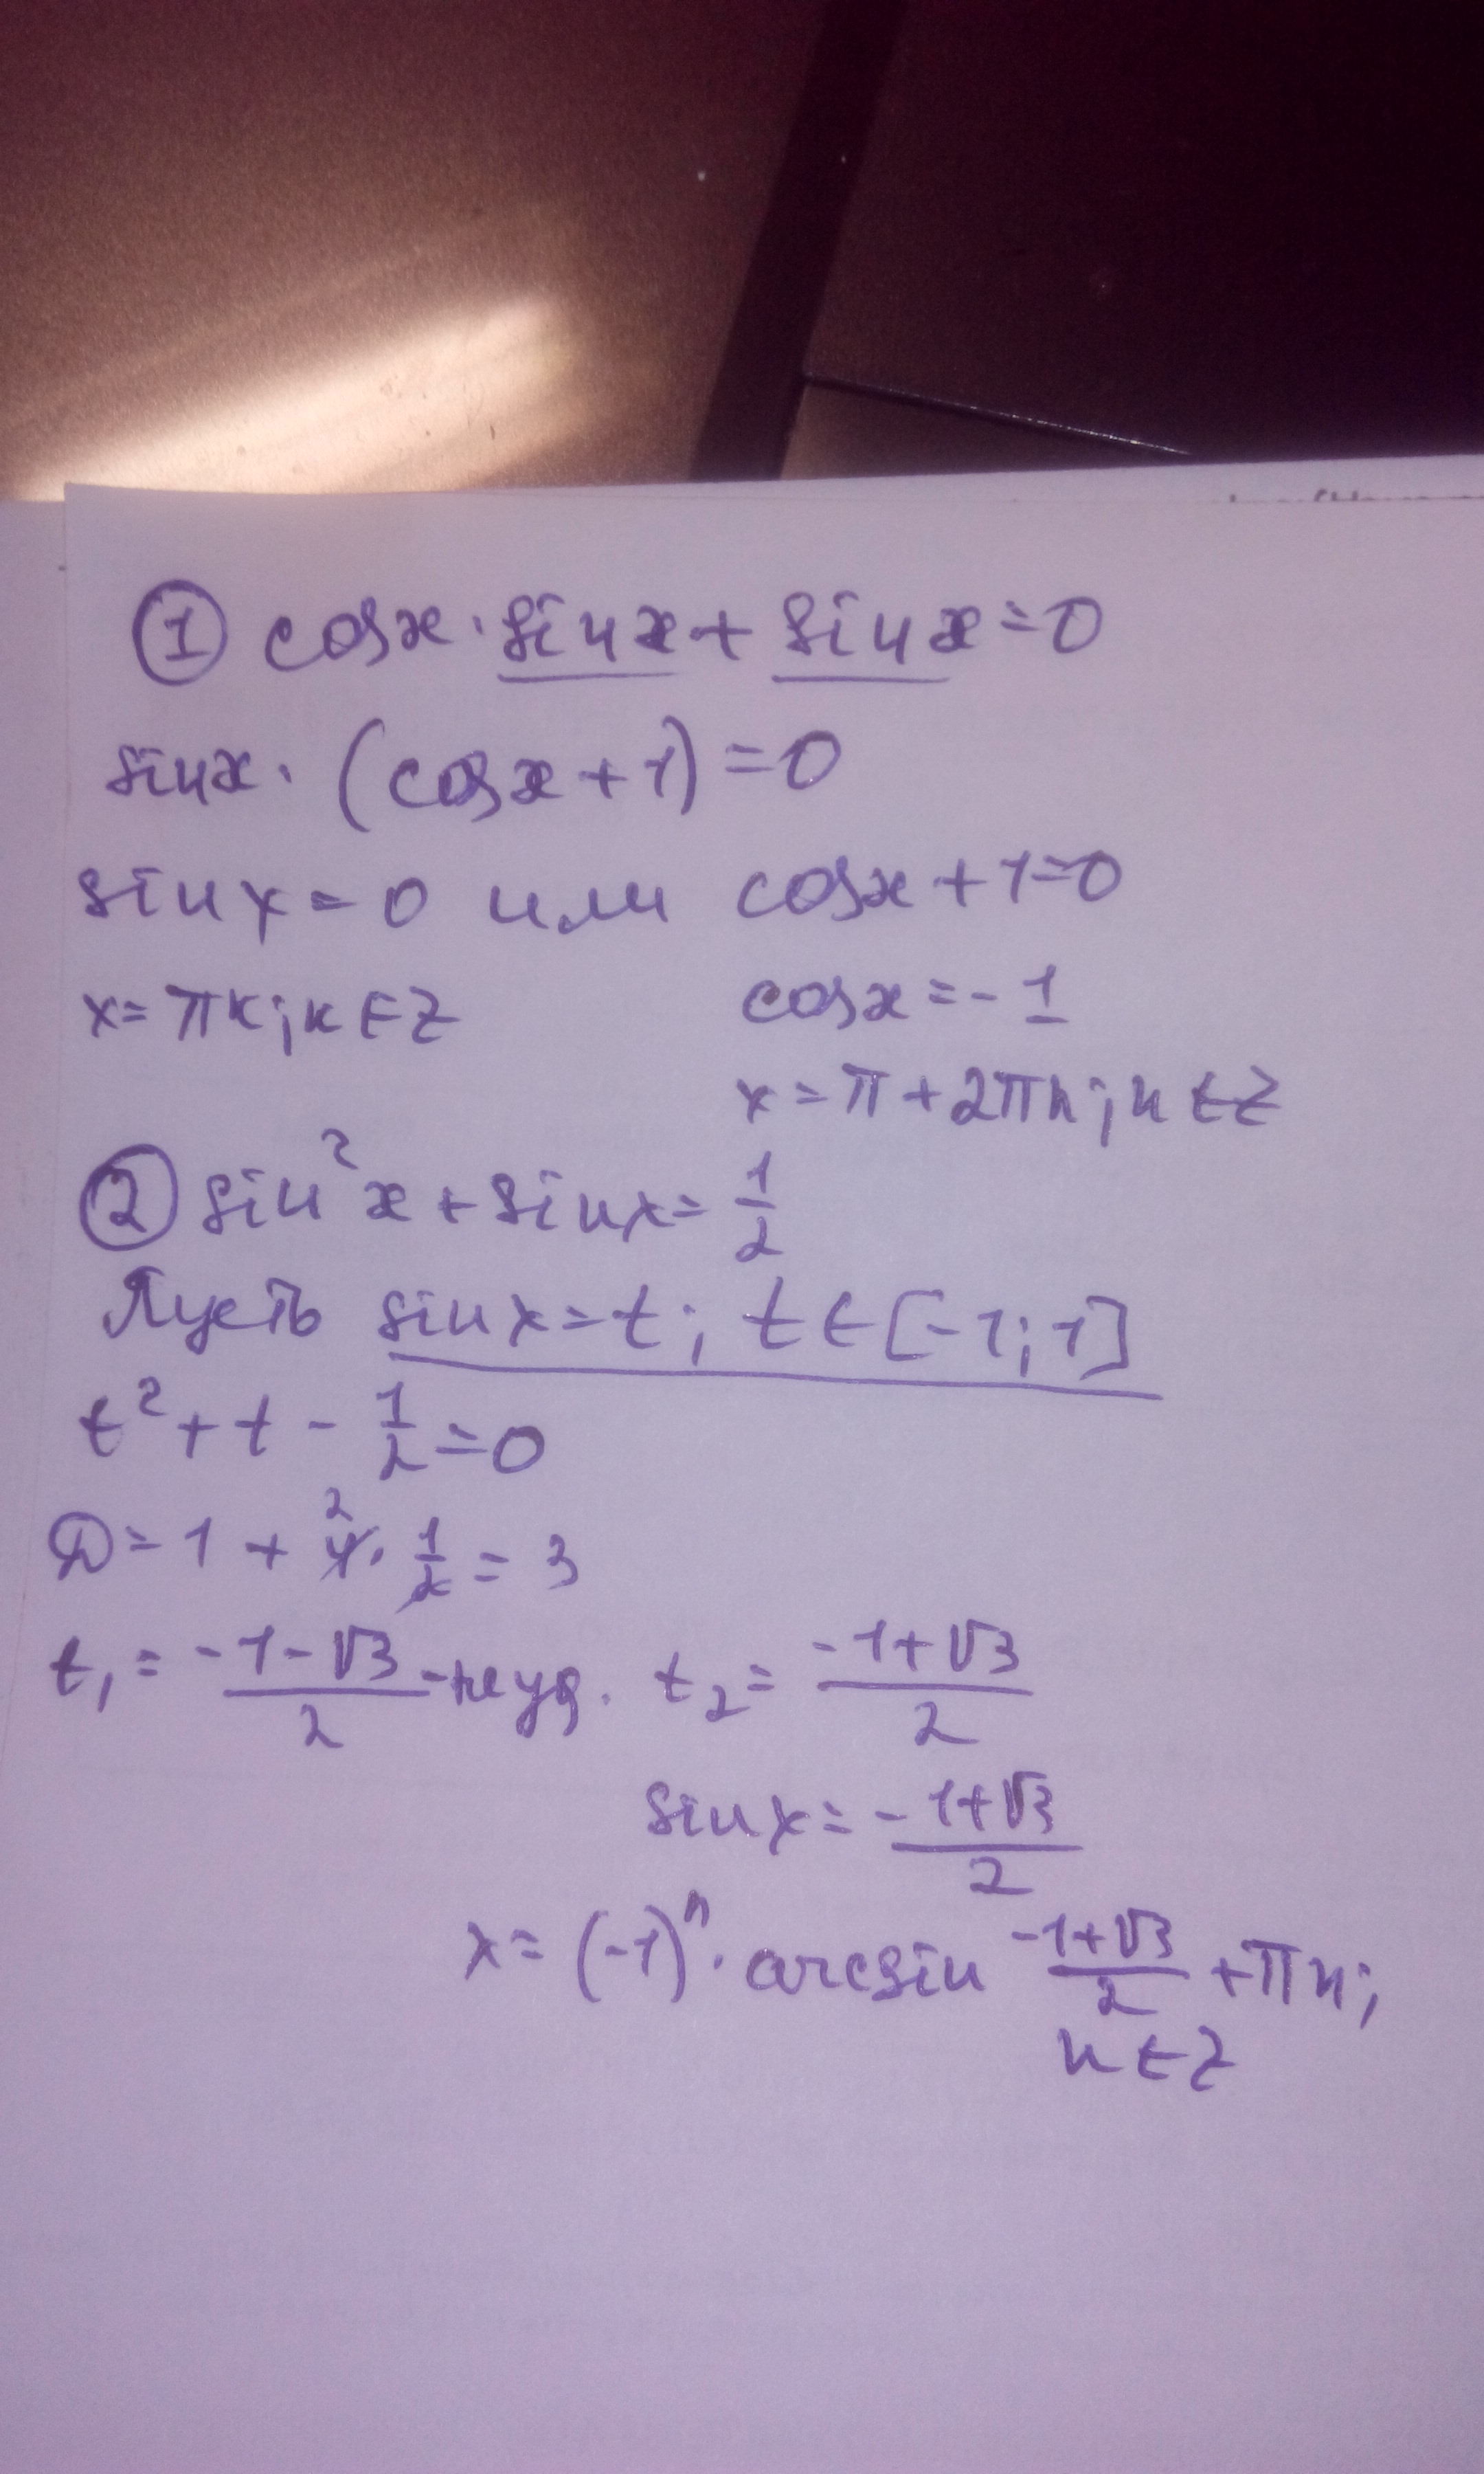 ① cosx · sinx + sinx = 0
sinx · (cosx + 1) = 0
sinx = 0 или cosx + 1 = 0
x = πk; k ∈ Z cosx = -1
x = π + 2πn; n ∈ Z
② sin²x + sinx = 1/2
Пусть sinx = t; t ∈ [-1; 1]
t² + t - 1/2 = 0
D = 1 + 4 · 1/2 = 3
t₁ = (-1-√3)/2 - не уд. t₂ = (-1+√3)/2
sinx = (-1+√3)/2
x = (-1)ⁿ · arcsin (-1+√3)/2 + πn;
n ∈ Z